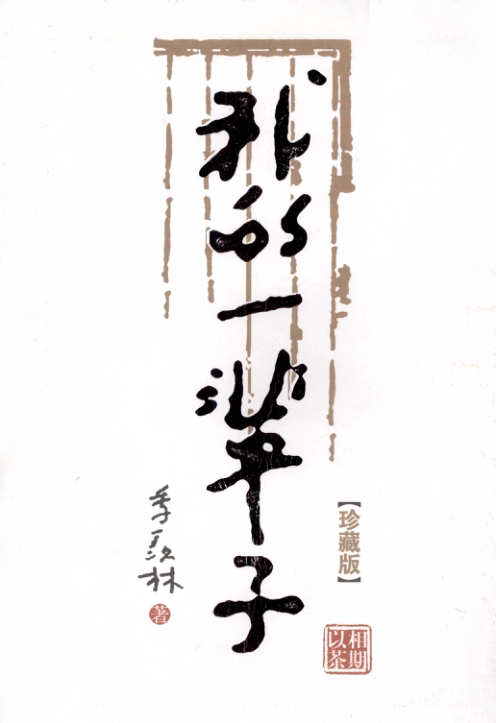 我的一辈子
【珍藏版】
季羡林
著
相期
以茶